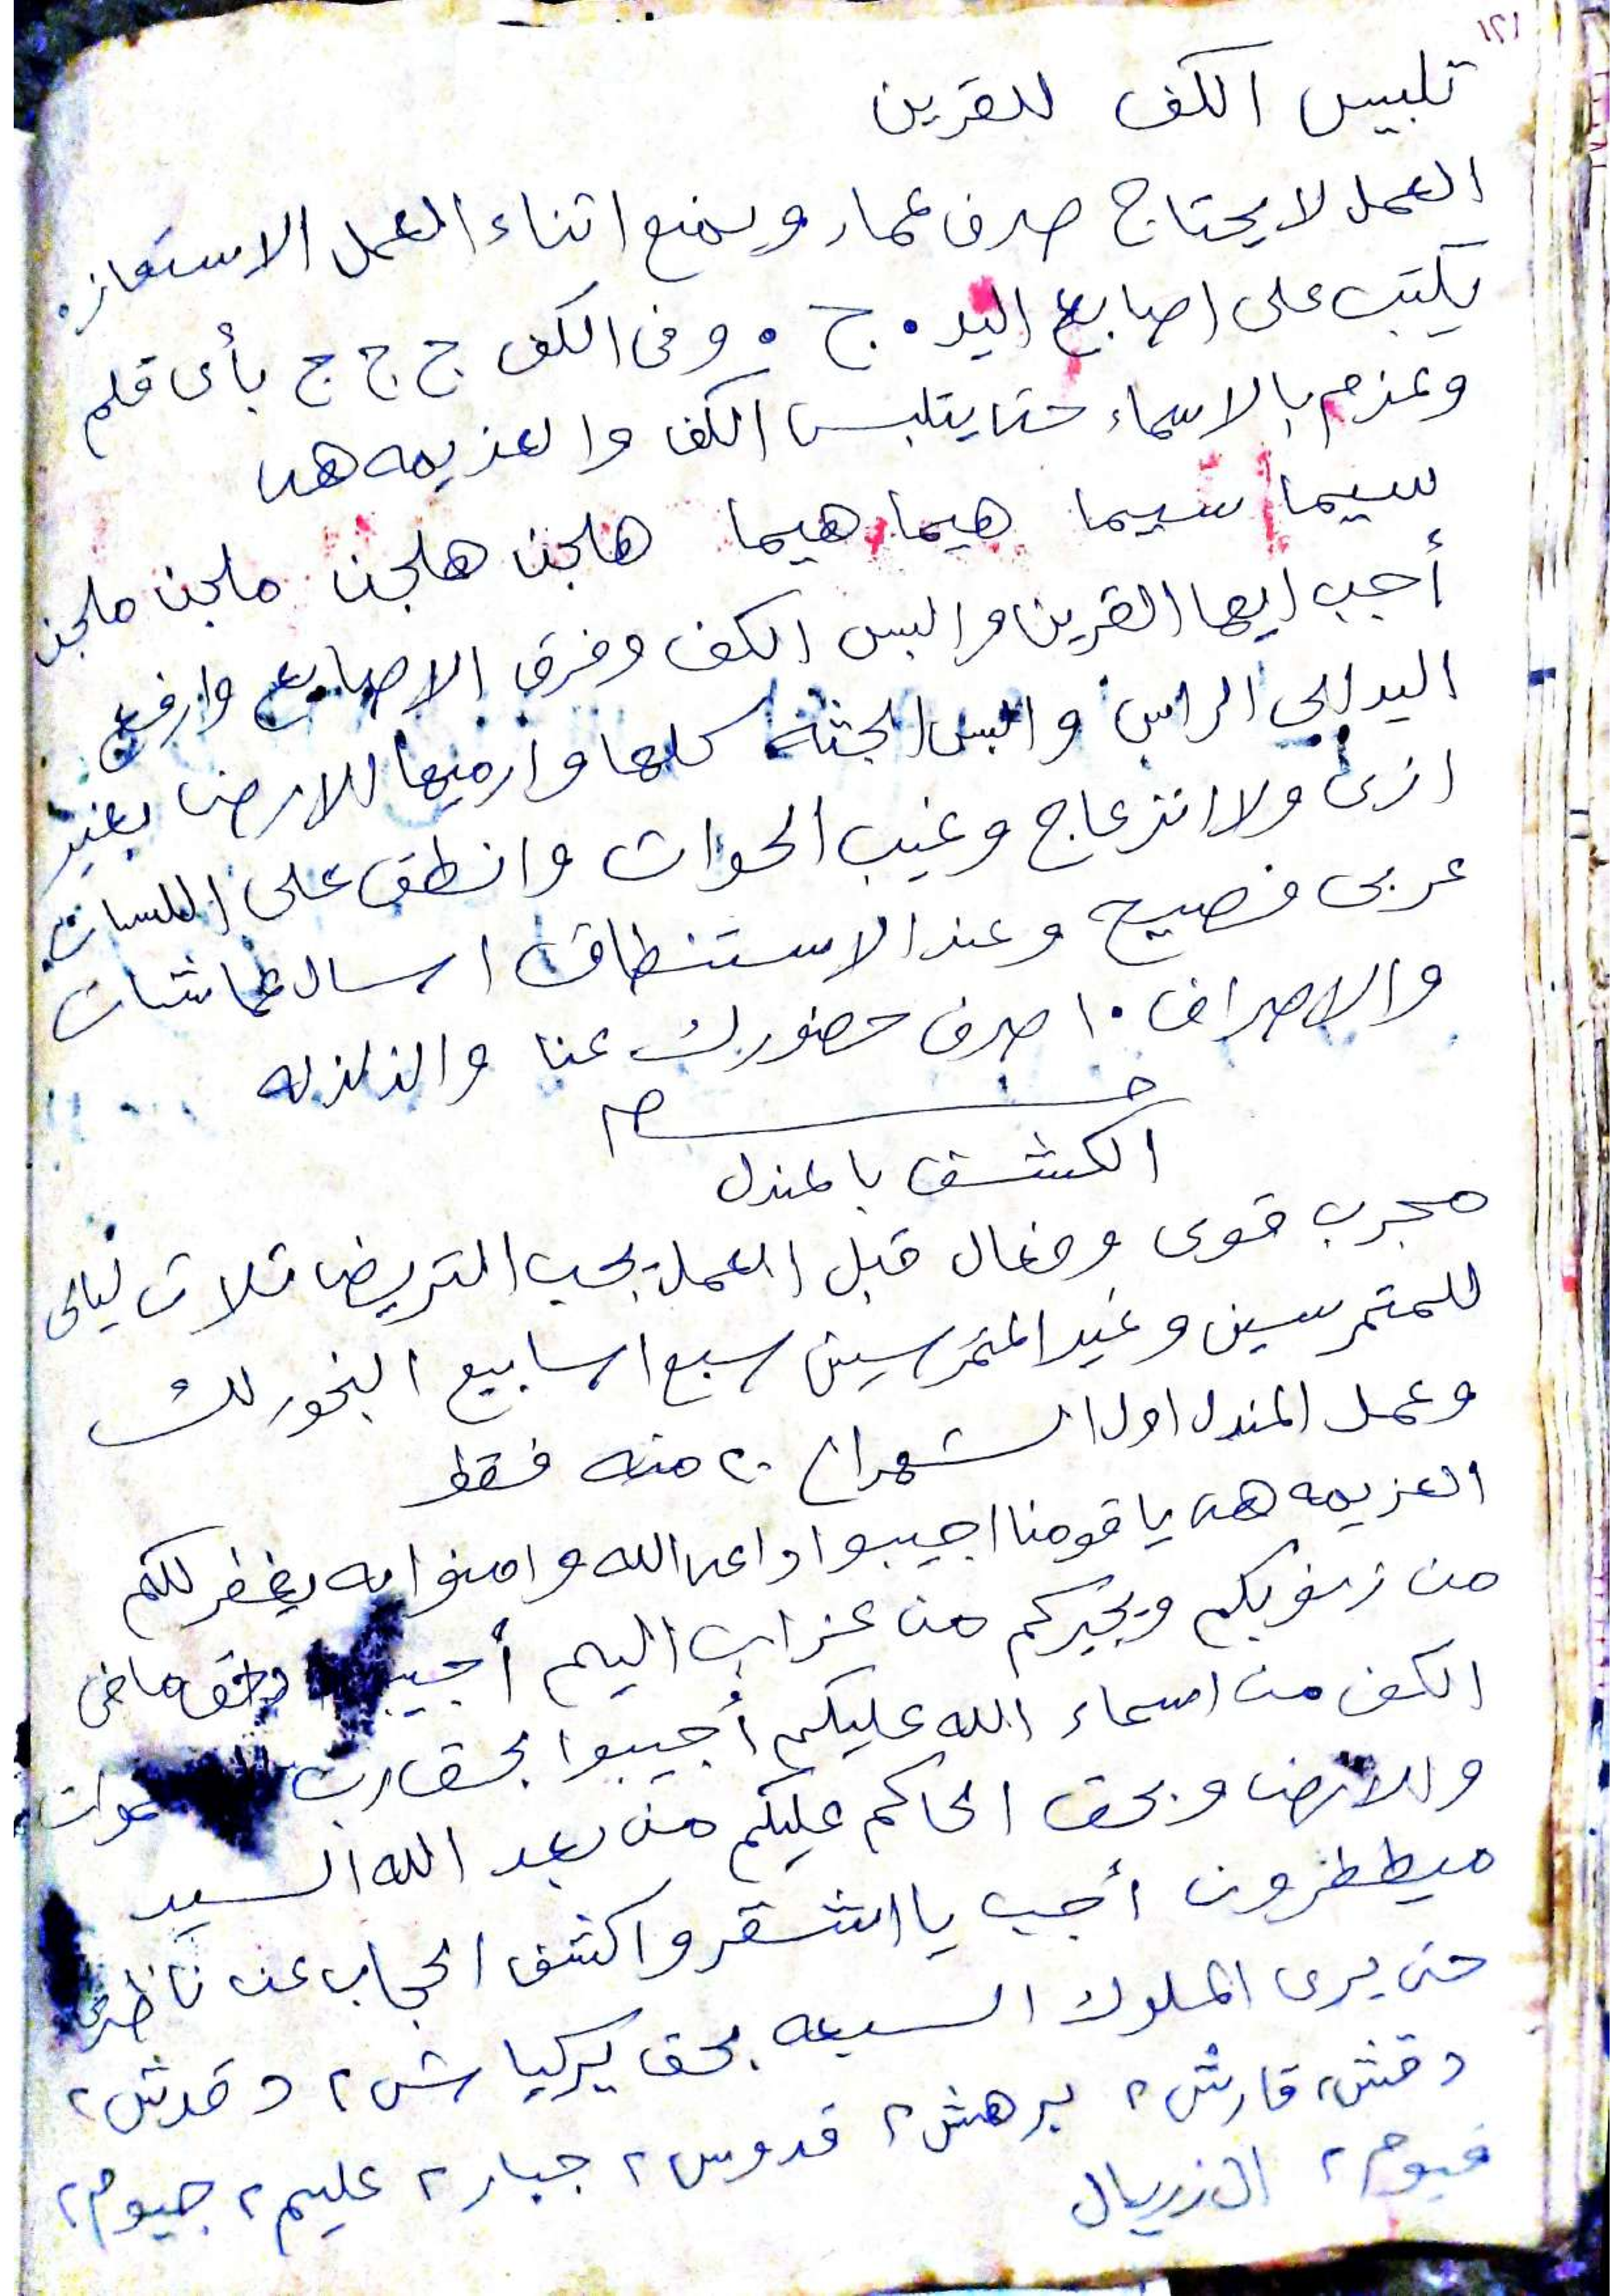 ١٢١
تلبيس الكف للقرين
العمل لا يحتاج صرف عمار ويمنع اثناء العمل الاستعاز.
يكتب على اصابع اليد . ج . وفى الكف ج ج ج بأى قلم
وعزم بالاسماء حتا يتلبس الكف والعزيمه هى
سيما سيما هيما هيما هلجن هلجن ملجن ملجن
أجب ايها القرين والبس الكف وفرق الاصابع وارفع
اليد الي الراس والبس الجثة كلها وارميها للارض بغير
ازى ولا انزعاج وغيب الحواث وانطق على اللسان
عربى فصيح وعند الاستنطاق اسال عما شئت
والاصراف ١٠ صرف حضورك عنا والزلزله
الكشف بالمندل
مجرب قوى وفعال قبل العمل يجب التريض ثلاث ليالى
للمتمرسين وغير المتمرسين سبع اسابيع البخور لك
وعمل المندل اول الشهر الى ٢٠ منه فقط
العزيمه هى يا قومنا اجيبوا داعى الله وامنوا به يغفر لكم
من زنوبكم ويجركم من عزاب اليم أجيبوا وبحق ما فى
الكف من اسماء الله عليكم أجيبوا بحق رب السموات
والارض وبحق الحاكم عليكم من بعد الله السيد
ميططرون أجب يا اشقر واكشف الحجاب عن ناظرى
حتى يرى الملوك السبعه بحق يركياش ٢ دقدش ٢
دقش ٢ قارش ٢ برهش ٢ قدوس ٢ جبار ٢ عليم ٢ جيوم ٢
قيوم ٢ الزريال